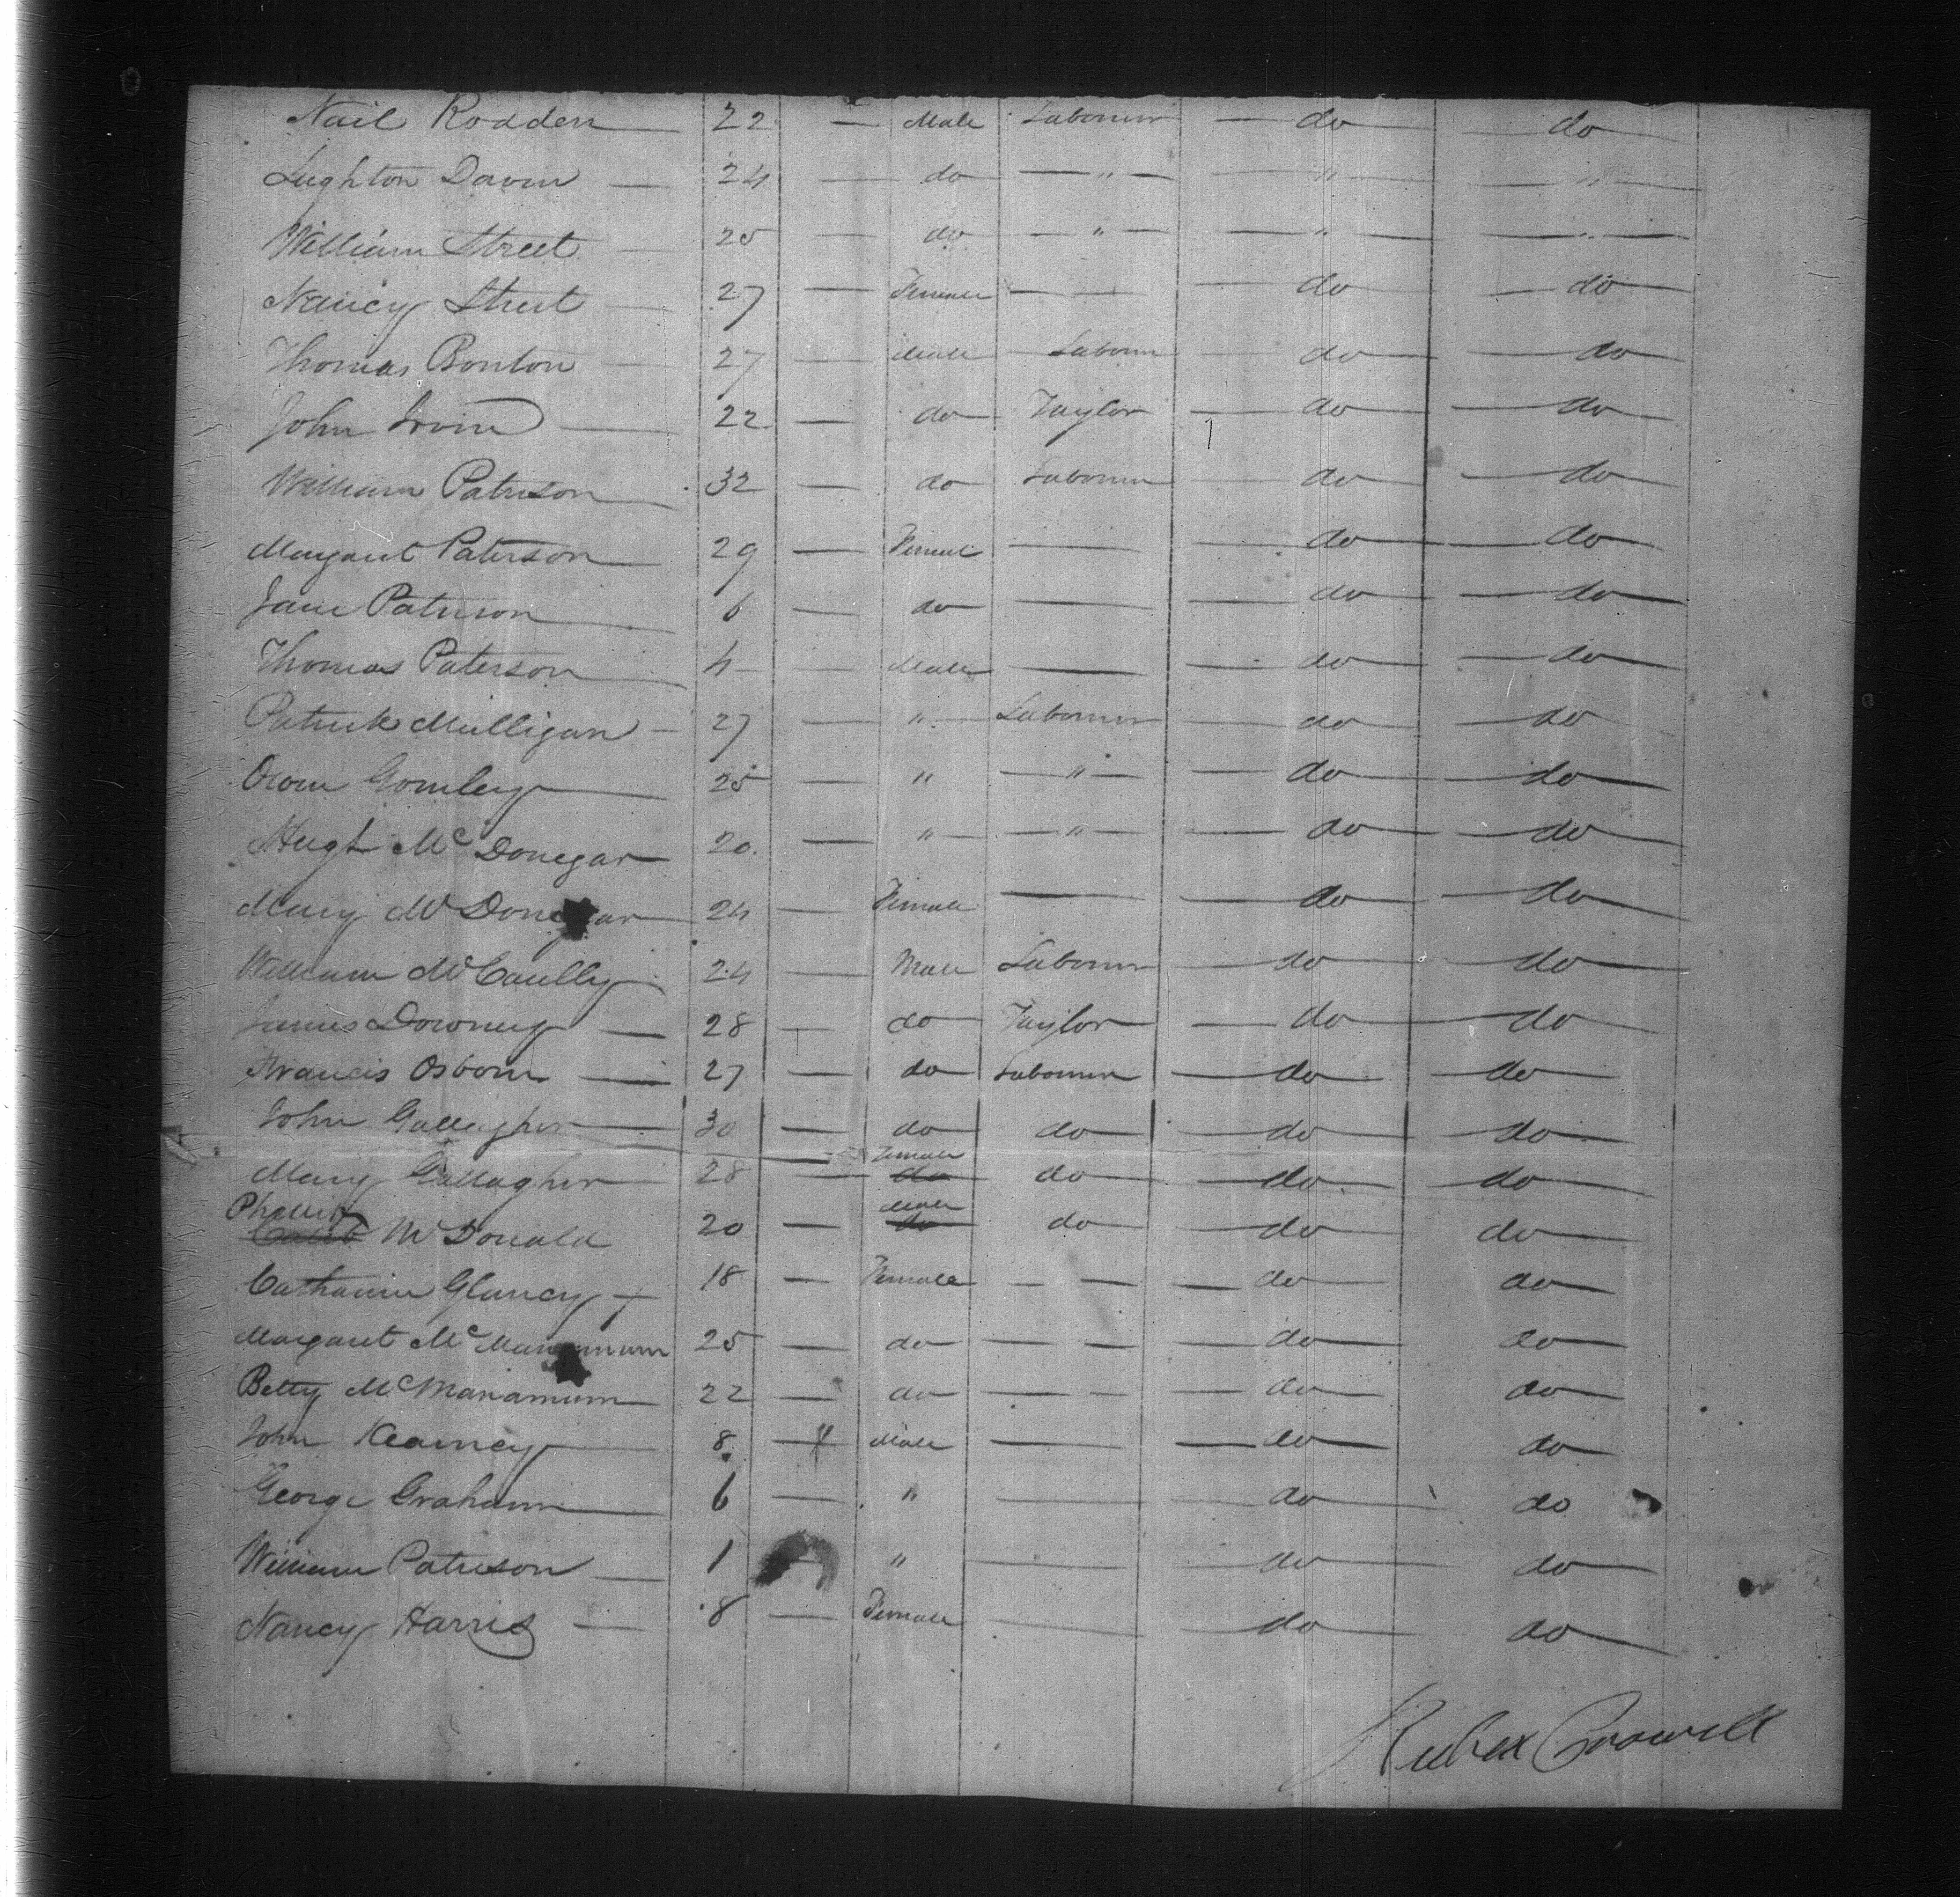 Nail Rodden 22 — Male Labourer — do — do
Lughton Daven — 24 — do — " — — " — — " —
William Street 25 — do — " — — " — — " —
Nancy Street — 27 — Female — — — do — do
Thomas Bonton — 27 — Male — Labourer — do — do
John Irvin — 22 — do Taylor — do — do
William Paterson 32 — do Labourer — do — do
Margaret Paterson 29 — Female — — do — do
Jane Paterson 6 — do — — do — do
Thomas Paterson 4 — Male — — do — do
Patrick Mulligan — 27 — " — Labourer — do — do
Owen Gomley 25 — " — " — — do — do
Hugh Mc Donegar 20. — " — " — — do — do
Mary Mc Donegar 24 — Female — — do — do
William Mc Caully 24 — Male Labourer — do — do
James Downey — 28 — do Taylor — do — do
Francis Osborn — 27 — do Labourer — do — do
John Gallagher 30 — do do — do — do
Female
Mary Gallagher 28 — do do — do — do
Phillip Male
Mc Donald 20 — do do — do do
Catharine Glancy + 18 — Female — — — do do
Margaret Mc Manamum 25 — do — — — do do
Betty Mc Manamum 22 — do — — — do do
John Kearney 8 — Male — — do do
George Graham 6 — " — — do do
William Paterson — 1 — " — — do do
Nancy Harris — 8 — Female — — do do
Crowell